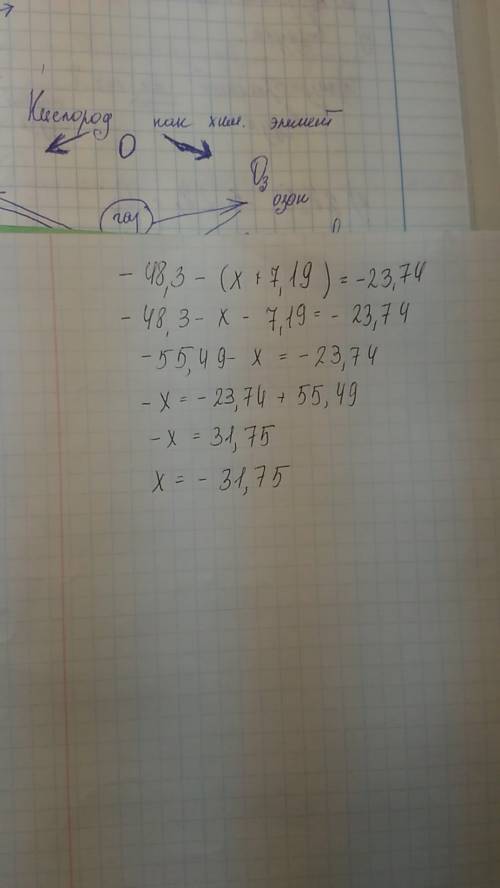 Кислород как хим. элемент
O
O3
озон
газ
- 48,3 - (x + 7,19) = -23,74
- 48,3 - x - 7,19 = - 23,74
-55,49 - x = -23,74
-x = -23,74 + 55,49
-x = 31,75
x = - 31,75